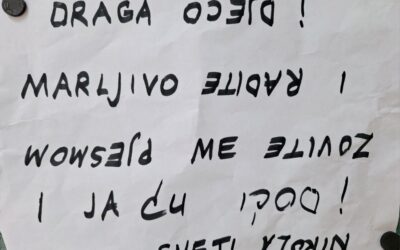 DRAGA DJECO !
MARLJIVO RADITE I
PJESMOM ME ZOVITE
I JA ĆU DOĆI !
SVETI NIKOLA